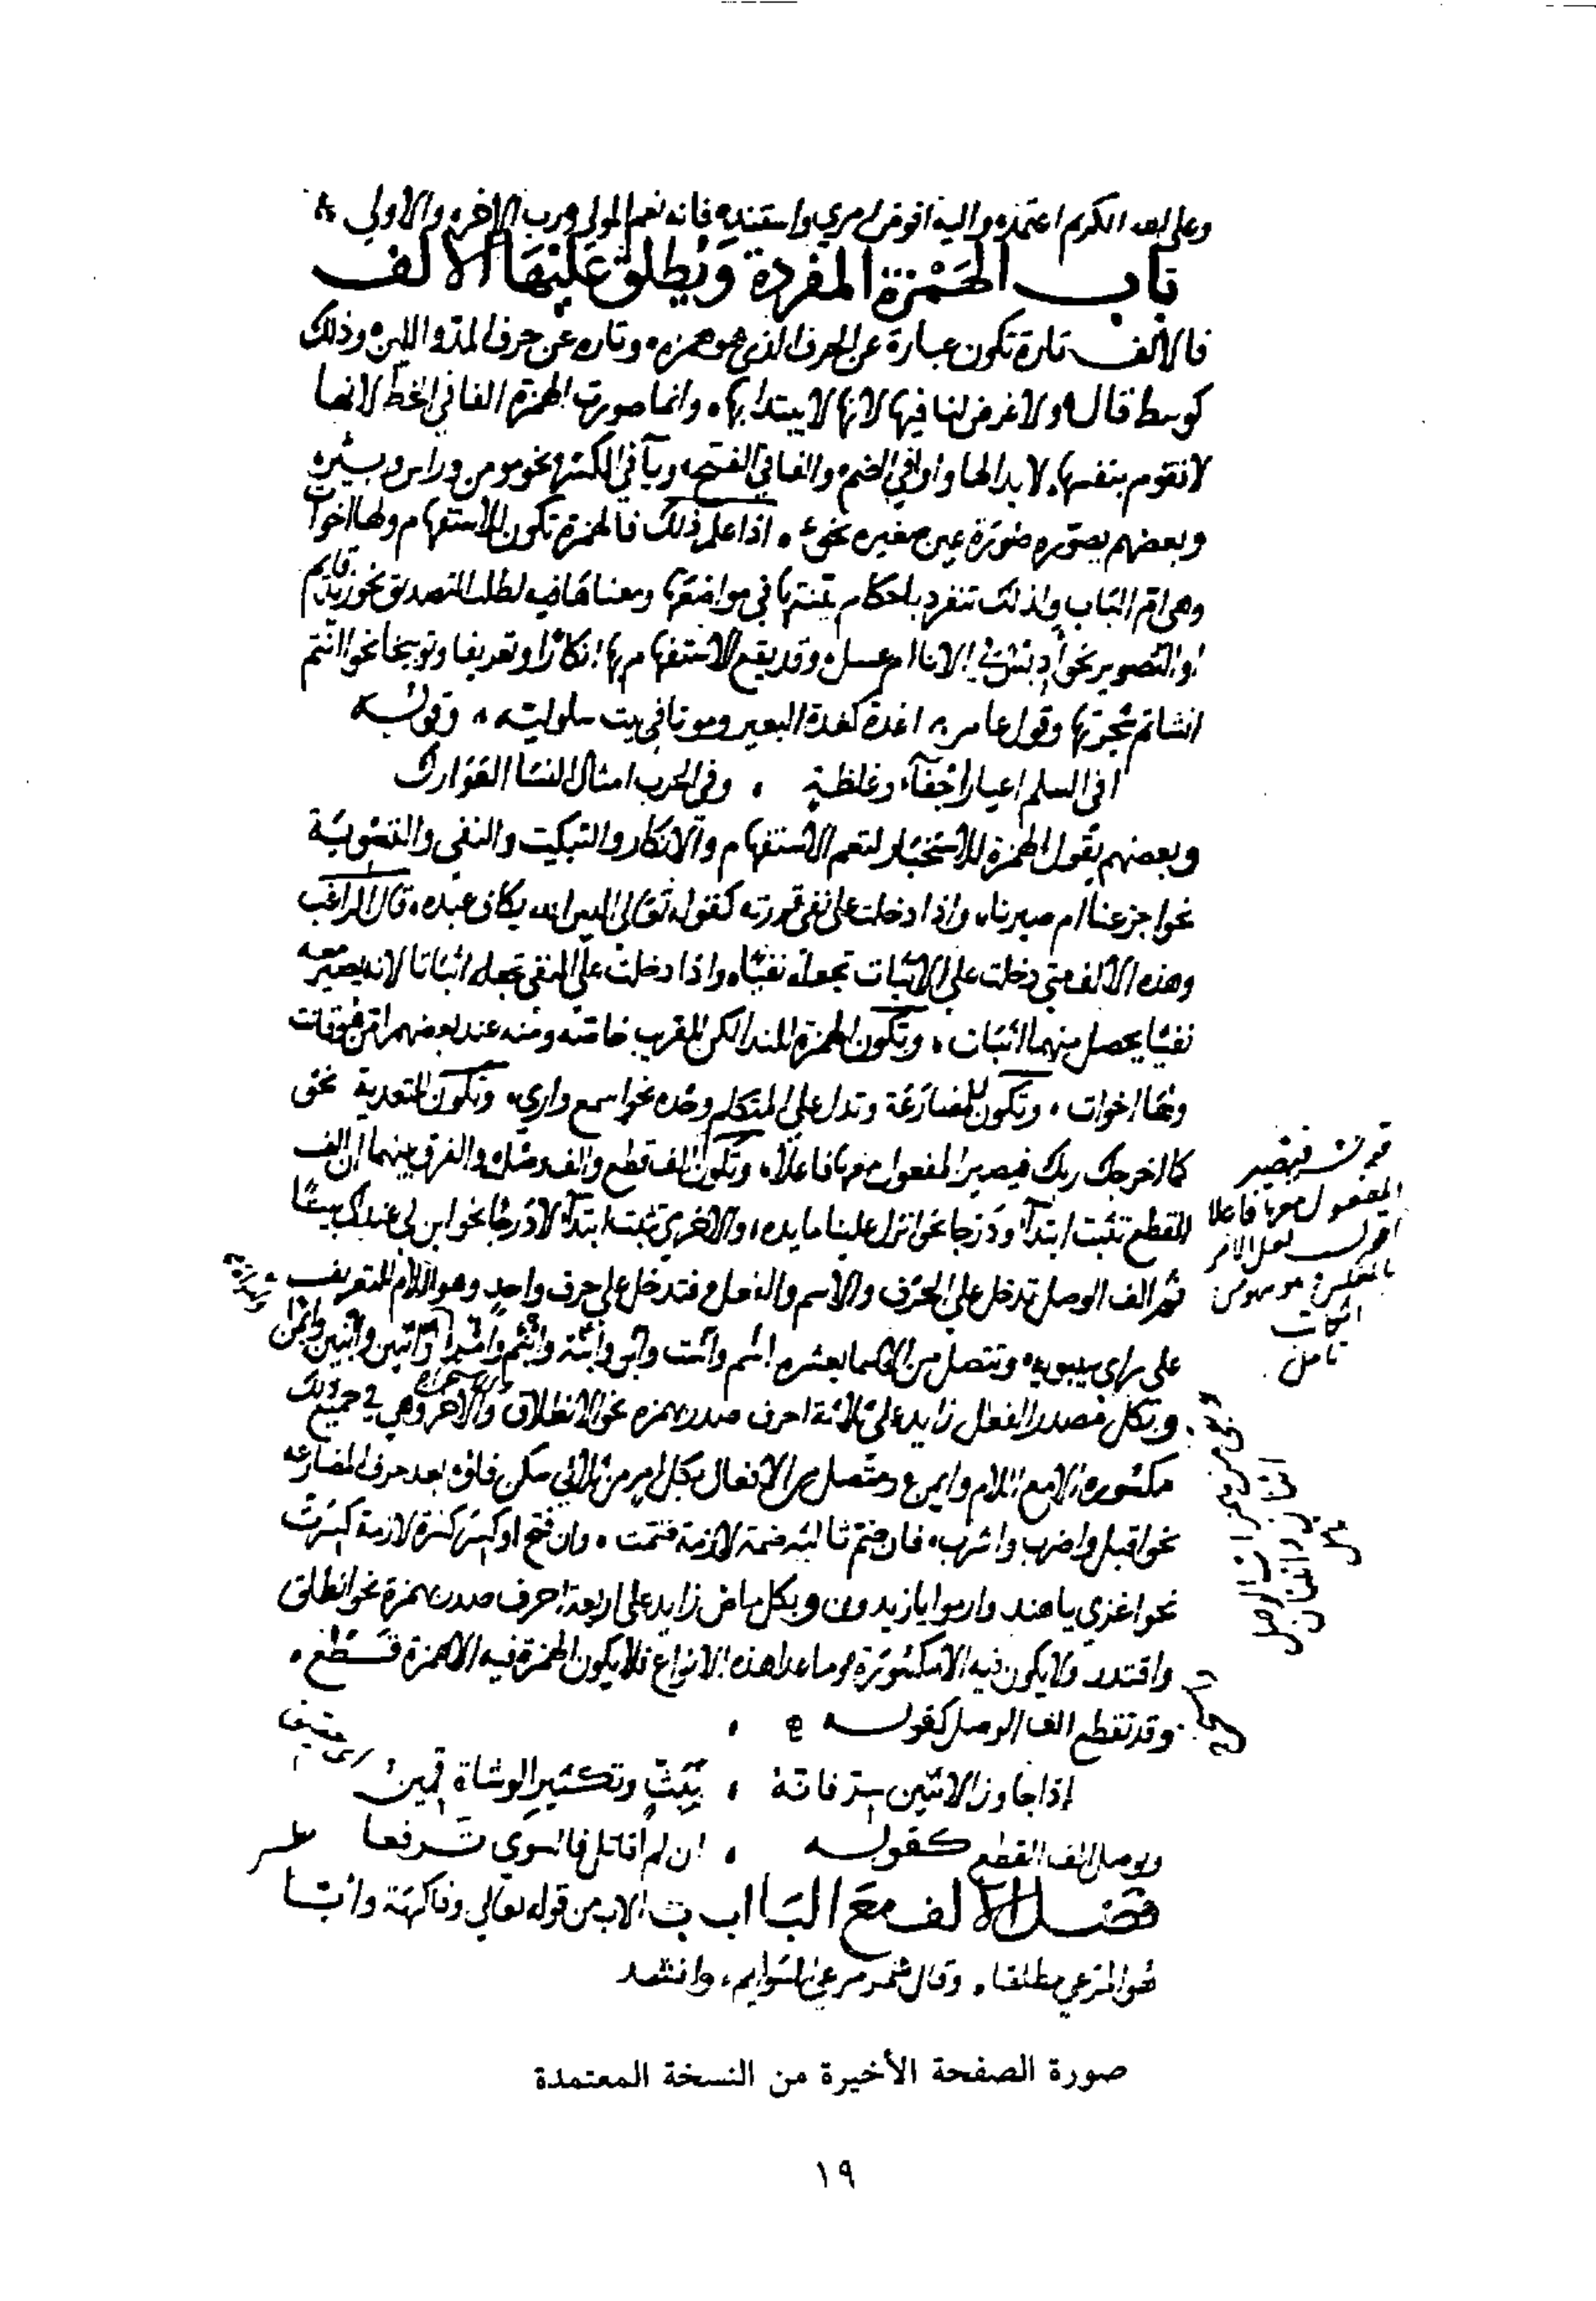 وعلى الله الكريم اعتمد واليه افوض امري واستند فانه نعم المولى ورب الاخرة والاولى
باب الهمزة المفردة ويطلق عليها الالف
فالالف تارة تكون عبارة عن الحرف الذي هو همزه وتاره عن حرف المد واللين وذلك
كوسط قال ولا غرض لنا فيها لانها لا يبتدا بها وانما صورت الهمزة الفا في الخط لانها
لا تقوم بنفسها لا بد لها واوا في الضم والفا في الفتح ويآ في الكسر نحو مومن وراس وبير
وبعضهم يصوره صورة عين صغيره نحو ء اذا علم ذلك فالهمزة تكون للاستفهام ولها اخوات
وهي ام الباب ولذلك تنفرد باحكام بينتها في مواضعها ومعناها فيه لطلب التصديق نحو ازيد قايم
او التصوير نحو أدبس في الانا ام عسل وقد يقع الاستفهام بها انكارا وتعريفا وتوبيخا نحو اانتم
انشاتم شجرتها وقول عامر اغدة كغدة البعير وموتا في بيت سلوليه وقوله
افي السلم اعيارا جفآء وغلظة وفي الحرب امثال النسا العوارك
وبعضهم يقول الهمزة للاستخبار لتعم الاستفهام والانكار والتبكيت والنفي والتسوية
نحو اجزعنا ام صبرنا واذا دخلت على نفي قررته كقوله تعالى اليس الله بكاف عبده قال الراغب
وهذه الالف متى دخلت على الاثبات تجعله نفيا واذا دخلت على النفي تجعله اثباتا لانه يصير معه
نفيا يحصل منهما اثبات وتكون الهمزة للندا لكن للقريب خاصة ومنه عند بعضهم امن هو قانت
ولها اخوات وتكون للمضارعة وتدل على المتكلم وحده نحو اسمع واري وتكون للتعدية نحو
كما اخرجك ربك فيصير المفعول معها فاعلا وتكون الف قطع والف وصل والفرق بينهما ان الف
القطع تثبت ابتدآ ودرجا نحو انزل علينا مايده والاخرى تثبت ابتدآ لا درجا نحو ابن لي عندك بيتا
ثم الف الوصل تدخل على الحرف والاسم والفعل فتدخل على حرف واحد وهو اللام للتعريف
على راي سيبويه وتتصل من الاسما بعشره اسم واست وابن وابنة وابنم وامرا واثنين
وبكل مصدر لفعل زايد على ثلاثة احرف صدره همزه نحو الانطلاق وهي في جميع ذلك
مكسوره الا مع اللام وايمن وتتصل من الافعال بكل امر من ثلاثي سكن فاؤه بعد حرف المضارعه
نحو اقبل واضرب واشرب فان ضم ثالثه ضمة لازمة ضمت وان فتح او كسر كسرة لازمة كسرت
نحو اغزي يا هند وارموا يا زيدون وبكل ماض زايد على اربعة احرف صدره همزة نحو انطلق
واقتدر ولا يكون فيه الا مكسورة وما عدا هذه الانواع فلا يكون الهمزة فيه الا همزة قطع
وقد تقطع الف الوصل كقوله
إذا جاوز الاثنين سر فانه ببث وتكثير الوشاة قمين
ويوصل الف القطع كقوله ان لم اقاتل فالبسوني برقعا
فصل الالف مع البا اب ب الاب من قوله تعالى وفاكهة وابا
هو المرعي مطلقا وقال شمر مرعى السوايم وانشد
فيصير
المفعول معها فاعلا
تامل
صورة الصفحة الأخيرة من النسخة المعتمدة
١٩